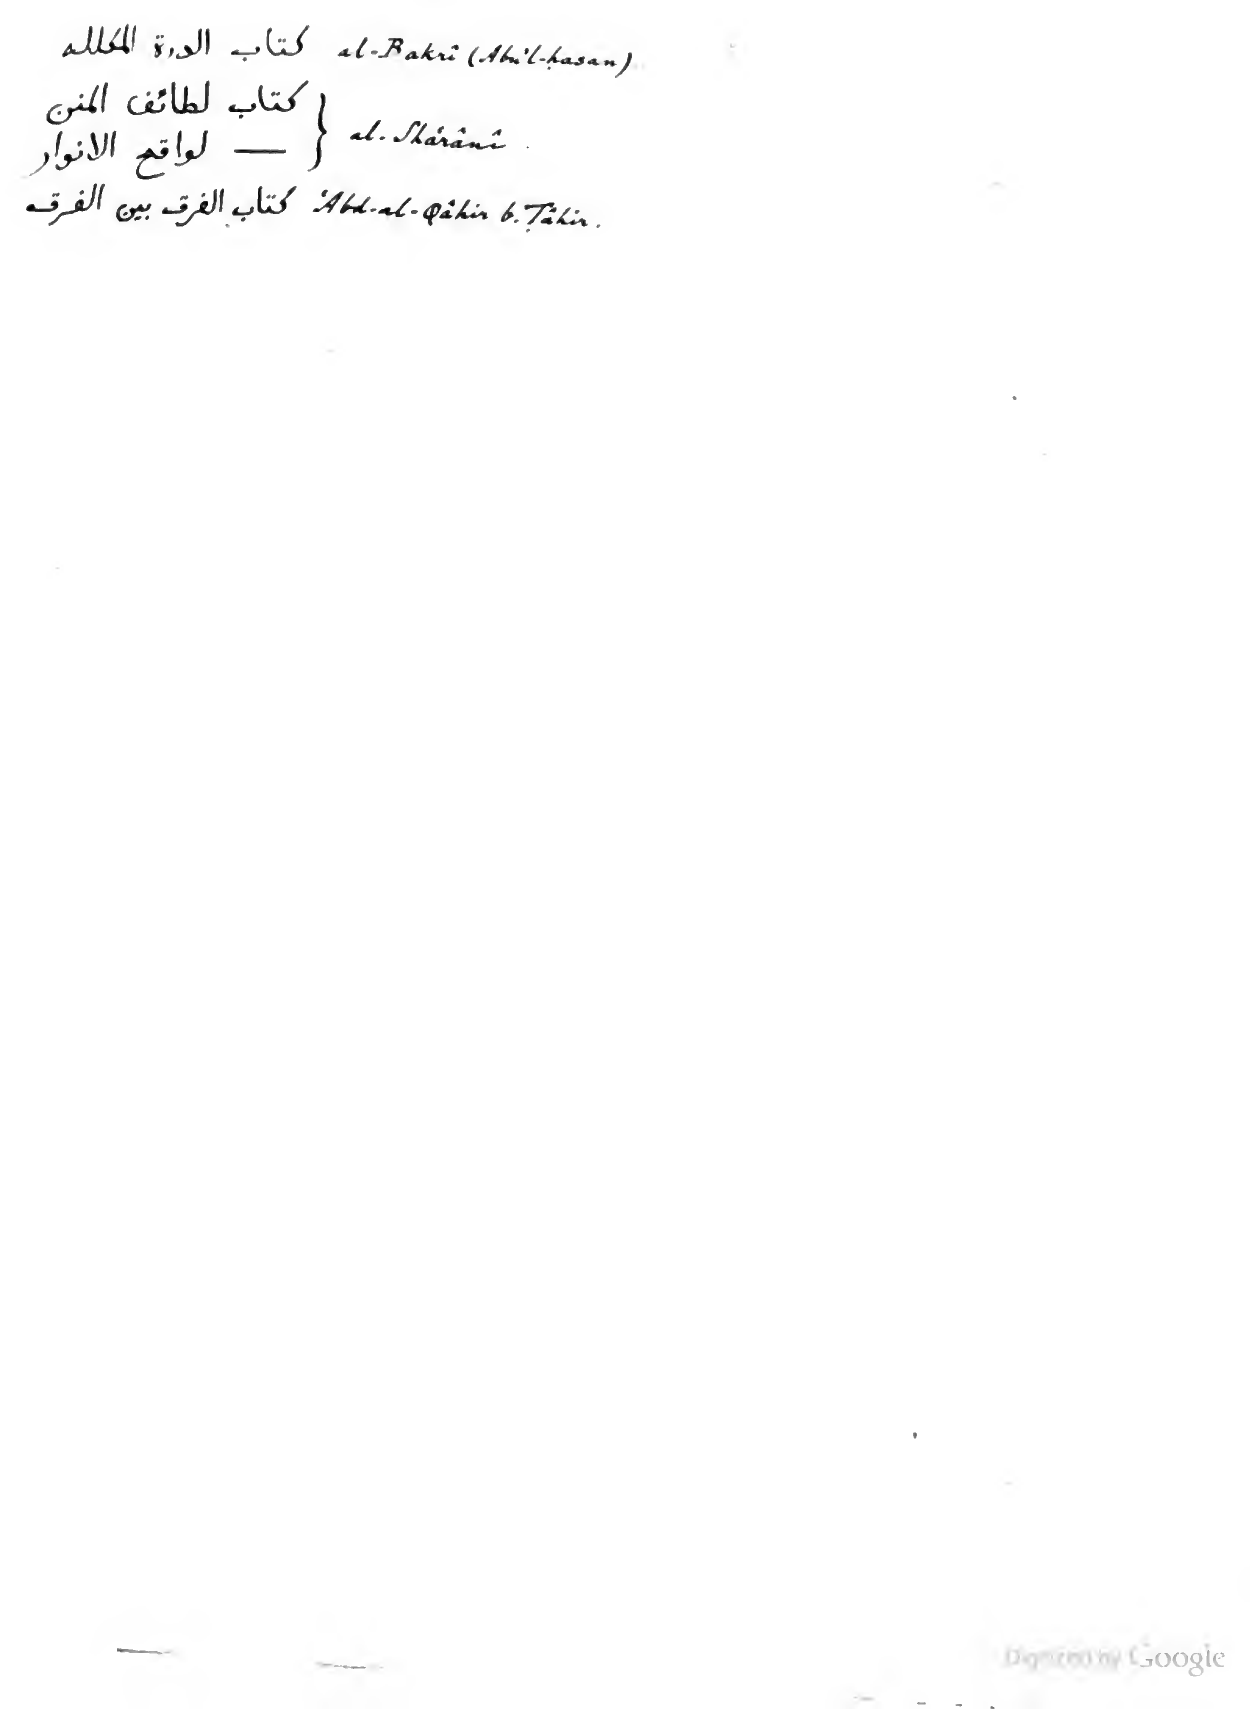 كتاب الدرة المكلله al-Bakrî (Abu'l-ḥasan)
كتاب لطائف المنن
— لواقح الانوار } al-Sha'rânî
كتاب الفرق بين الفرق 'Abd-al-Qâhir b. Ṭâhir.
Digitized by Google